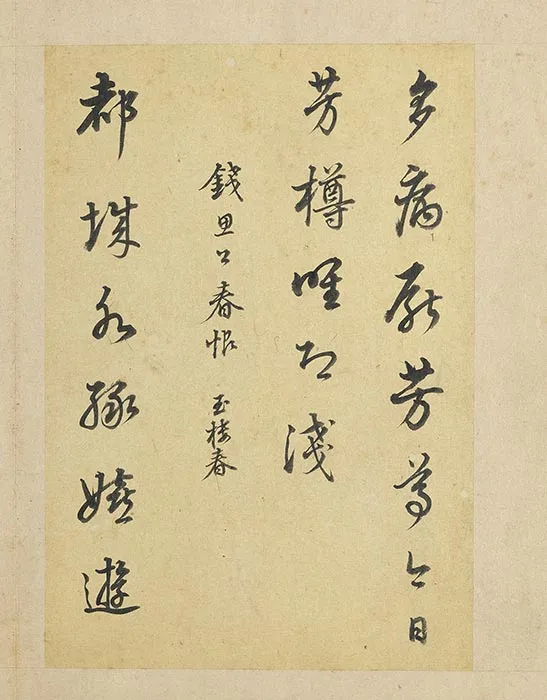 多病厭芳尊今日
芳樽唯恐淺
錢思公春恨 玉楼春
都城水綠嬉遊